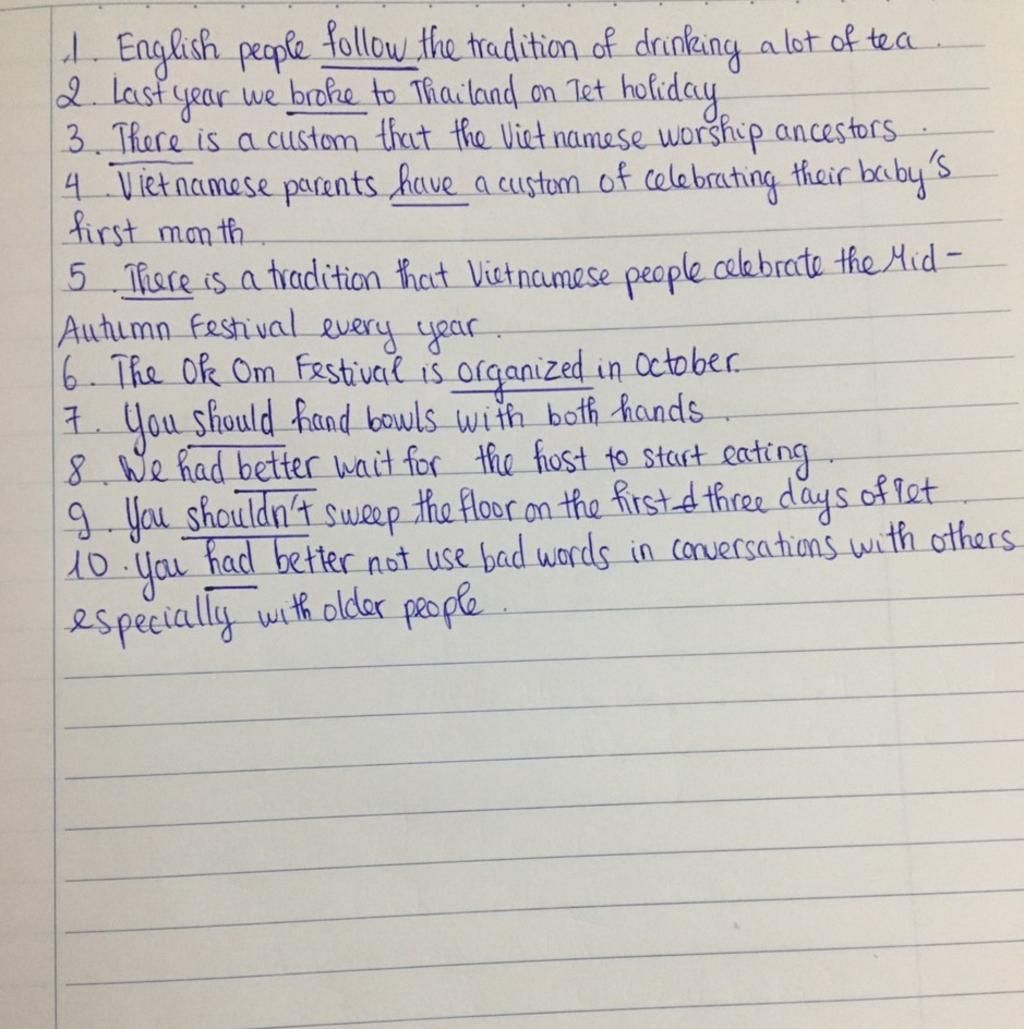 1. English people follow the tradition of drinking a lot of tea.
2. Last year we broke to Thailand on Tet holiday
3. There is a custom that the Vietnamese worship ancestors.
4. Vietnamese parents have a custom of celebrating their baby's
first month
5. There is a tradition that Vietnamese people celebrate the Mid-
Autumn Festival every year.
6. The Ok Om Festival is organized in October.
7. You should hand bowls with both hands.
8. We had better wait for the host to start eating.
9. You shouldn't sweep the floor on the first three days of Tet.
10. You had better not use bad words in conversations with others
especially with older people.